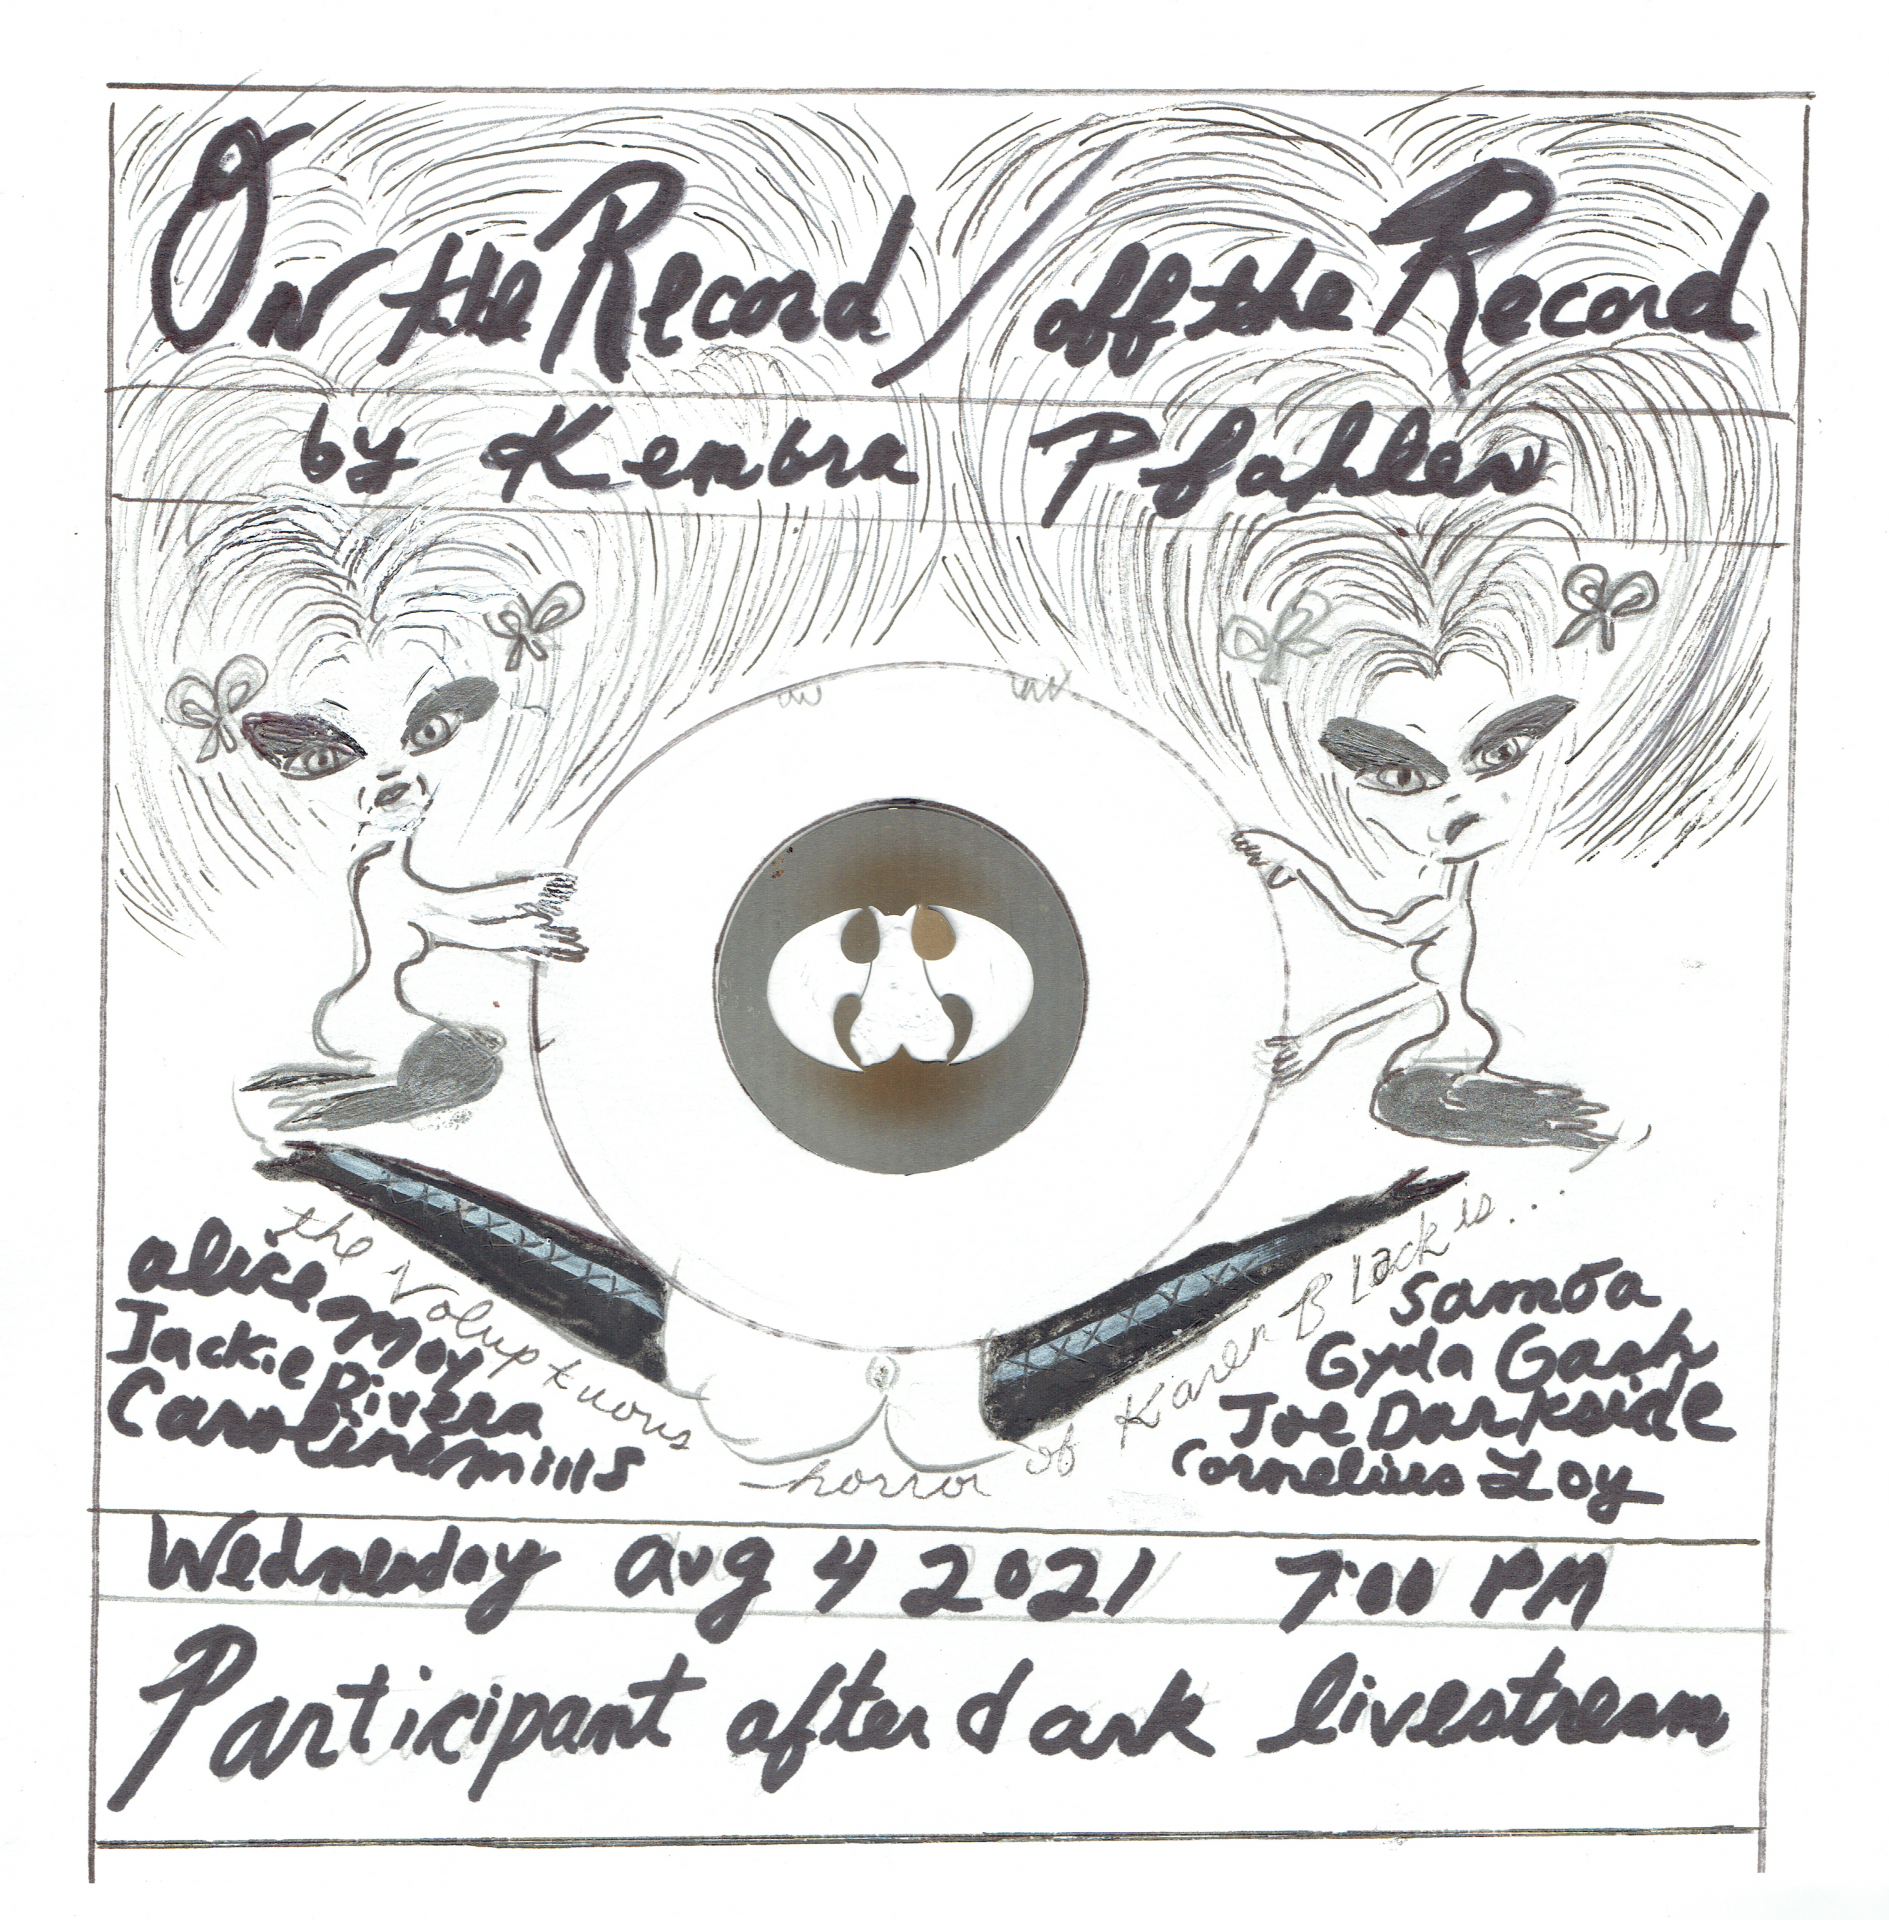 On the Record / off the Record
by Kembra Pfahler
the Voluptuous horror of Karen Black is...
alice moy
Jackie Rivera
Caroline mills
Samoa
Gyda Gash
Joe Darkside
Cornelius Loy
Wednesday aug 4 2021 7:00 PM
Participant after dark livestream